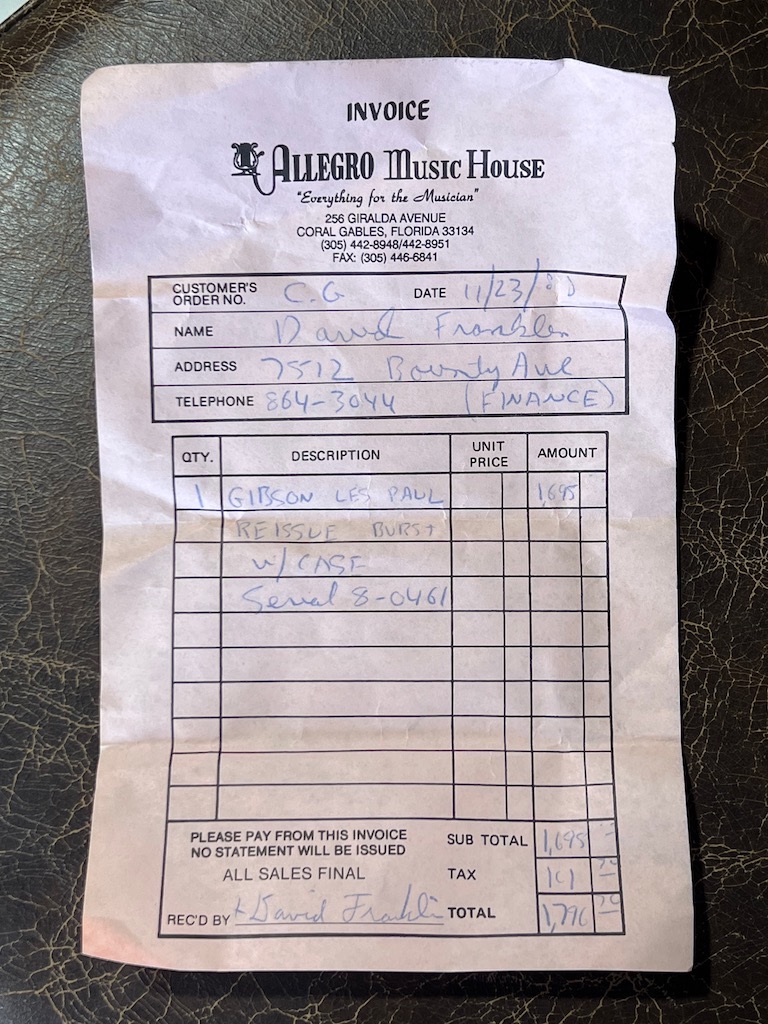 INVOICE
ALLEGRO MUSIC HOUSE
"Everything for the Musician"
256 GIRALDA AVENUE
CORAL GABLES, FLORIDA 33134
(305) 442-8948/442-8951
FAX: (305) 446-6841
CUSTOMER'S ORDER NO. C.G DATE 11/23/
NAME David Franklin
ADDRESS 7512 Bounty Ave
TELEPHONE 864-3044 (FINANCE)
QTY. DESCRIPTION UNIT PRICE AMOUNT
1 GIBSON LES PAUL 1695
REISSUE BURST
W/ CASE
Serial 8-0461
PLEASE PAY FROM THIS INVOICE
NO STATEMENT WILL BE ISSUED
SUB TOTAL 1,695
ALL SALES FINAL TAX 101
REC'D BY x David Franklin TOTAL 1,796